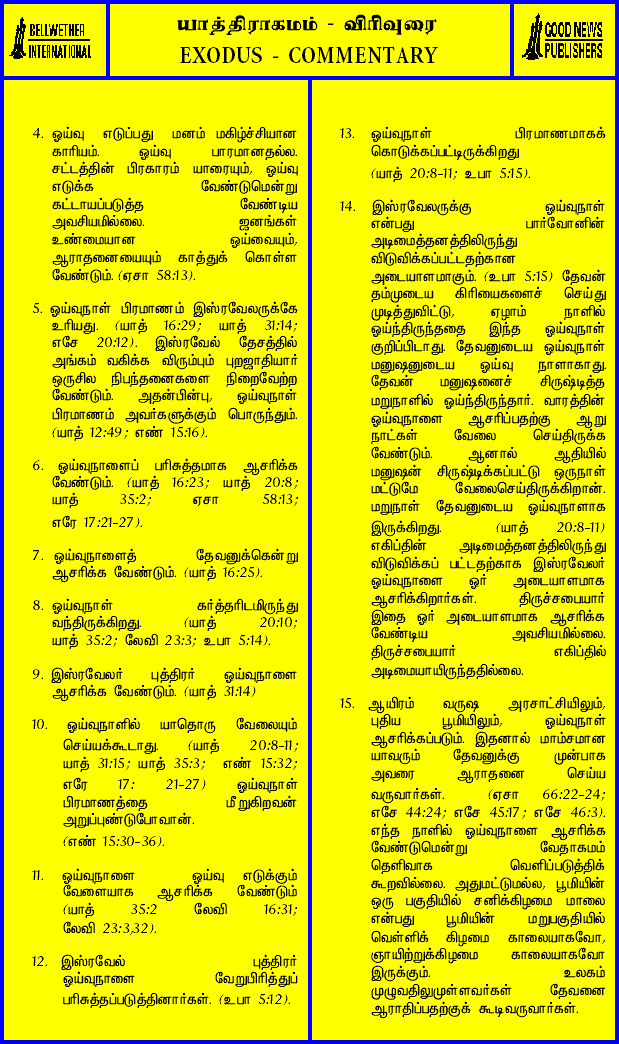 BELLWETHER
INTERNATIONAL
யாத்திராகமம் - விரிவுரை
EXODUS - COMMENTARY
GOOD NEWS
PUBLISHERS
4. ஓய்வு எடுப்பது மனம் மகிழ்ச்சியான
காரியம். ஓய்வு பாரமானதல்ல.
சட்டத்தின் பிரகாரம் யாரையும், ஓய்வு
எடுக்க வேண்டுமென்று
கட்டாயப்படுத்த வேண்டிய
அவசியமில்லை. ஜனங்கள்
உண்மையான ஓய்வையும்,
ஆராதனையையும் காத்துக் கொள்ள
வேண்டும். (ஏசா 58:13).
5. ஓய்வுநாள் பிரமாணம் இஸ்ரவேலருக்கே
உரியது. (யாத் 16:29; யாத் 31:14;
எசே 20:12). இஸ்ரவேல் தேசத்தில்
அங்கம் வகிக்க விரும்பும் புறஜாதியார்
ஒருசில நிபந்தனைகளை நிறைவேற்ற
வேண்டும். அதன்பின்பு, ஓய்வுநாள்
பிரமாணம் அவர்களுக்கும் பொருந்தும்.
(யாத் 12:49; எண் 15:16).
6. ஓய்வுநாளைப் பரிசுத்தமாக ஆசரிக்க
வேண்டும். (யாத் 16:23; யாத் 20:8;
யாத் 35:2; ஏசா 58:13;
எரே 17:21-27).
7. ஓய்வுநாளைத் தேவனுக்கென்று
ஆசரிக்க வேண்டும். (யாத் 16:25).
8. ஓய்வுநாள் கர்த்தரிடமிருந்து
வந்திருக்கிறது. (யாத் 20:10;
யாத் 35:2; லேவி 23:3; உபா 5:14).
9. இஸ்ரவேலர் புத்திரர் ஓய்வுநாளை
ஆசரிக்க வேண்டும். (யாத் 31:14)
10. ஓய்வுநாளில் யாதொரு வேலையும்
செய்யக்கூடாது. (யாத் 20:8-11;
யாத் 31:15; யாத் 35:3; எண் 15:32;
எரே 17: 21-27) ஓய்வுநாள்
பிரமாணத்தை மீறுகிறவன்
அறுப்புண்டுபோவான்.
(எண் 15:30-36).
11. ஓய்வுநாளை ஓய்வு எடுக்கும்
வேளையாக ஆசரிக்க வேண்டும்
(யாத் 35:2 லேவி 16:31;
லேவி 23:3,32).
12. இஸ்ரவேல் புத்திரர்
ஓய்வுநாளை வேறுபிரித்துப்
பரிசுத்தப்படுத்தினார்கள். (உபா 5:12).
13. ஓய்வுநாள் பிரமாணமாகக்
கொடுக்கப்பட்டிருக்கிறது
(யாத் 20:8-11; உபா 5:15).
14. இஸ்ரவேலருக்கு ஓய்வுநாள்
என்பது பார்வோனின்
அடிமைத்தனத்திலிருந்து
விடுவிக்கப்பட்டதற்கான
அடையாளமாகும். (உபா 5:15) தேவன்
தம்முடைய கிரியைகளைச் செய்து
முடித்துவிட்டு, ஏழாம் நாளில்
ஓய்ந்திருந்ததை இந்த ஓய்வுநாள்
குறிப்பிடாது. தேவனுடைய ஓய்வுநாள்
மனுஷனுடைய ஓய்வு நாளாகாது.
தேவன் மனுஷனைச் சிருஷ்டித்த
மறுநாளில் ஓய்ந்திருந்தார். வாரத்தின்
ஓய்வுநாளை ஆசரிப்பதற்கு ஆறு
நாட்கள் வேலை செய்திருக்க
வேண்டும். ஆனால் ஆதியில்
மனுஷன் சிருஷ்டிக்கப்பட்டு ஒருநாள்
மட்டுமே வேலைசெய்திருக்கிறான்.
மறுநாள் தேவனுடைய ஓய்வுநாளாக
இருக்கிறது. (யாத் 20:8-11)
எகிப்தின் அடிமைத்தனத்திலிருந்து
விடுவிக்கப் பட்டதற்காக இஸ்ரவேலர்
ஓய்வுநாளை ஓர் அடையாளமாக
ஆசரிக்கிறார்கள். திருச்சபையார்
இதை ஓர் அடையாளமாக ஆசரிக்க
வேண்டிய அவசியமில்லை.
திருச்சபையார் எகிப்தில்
அடிமையாயிருந்ததில்லை.
15. ஆயிரம் வருஷ அரசாட்சியிலும்,
புதிய பூமியிலும், ஓய்வுநாள்
ஆசரிக்கப்படும். இதனால் மாம்சமான
யாவரும் தேவனுக்கு முன்பாக
அவரை ஆராதனை செய்ய
வருவார்கள். (ஏசா 66:22-24;
எசே 44:24; எசே 45:17; எசே 46:3).
எந்த நாளில் ஓய்வுநாளை ஆசரிக்க
வேண்டுமென்று வேதாகமம்
தெளிவாக வெளிப்படுத்திக்
கூறவில்லை. அதுமட்டுமல்ல, பூமியின்
ஒரு பகுதியில் சனிக்கிழமை மாலை
என்பது பூமியின் மறுபகுதியில்
வெள்ளிக் கிழமை காலையாகவோ,
ஞாயிற்றுக்கிழமை காலையாகவோ
இருக்கும். உலகம்
முழுவதிலுமுள்ளவர்கள் தேவனை
ஆராதிப்பதற்குக் கூடிவருவார்கள்.